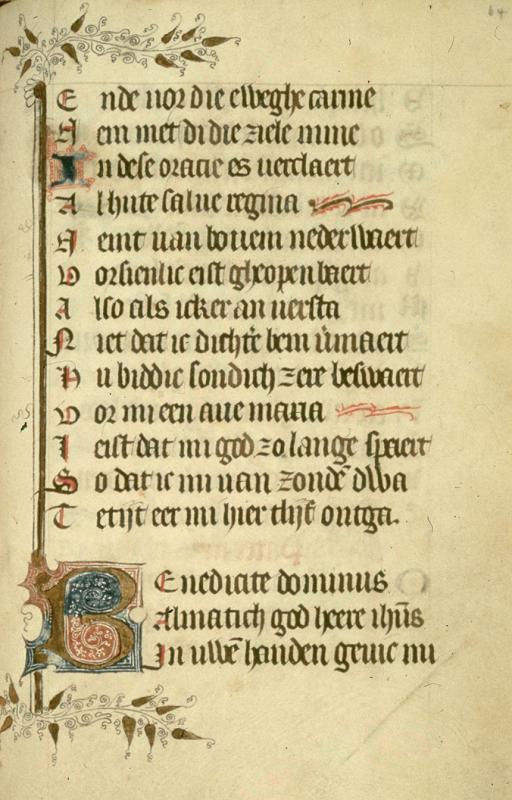 64
E nde uor die eweghe carine
N em met di die ziele mine
I n dese oracie es uerclaert
A lhute salue regina
N emt uan bouem nederwaert
V orsienlic eist gheopenbaert
A lso als icker an uersta
N iet dat ic dichtere bem vermaert
N u biddic sondich zere beswaert
V or mi een aue maria
I eist dat mi god zo lange spaert
S o dat ic mi uan zonden dwa
T etijt eer mi hier tlijf ontga.
B Enedicite dominus
Almatich god heere ihūs
In uwē handen geuic mi